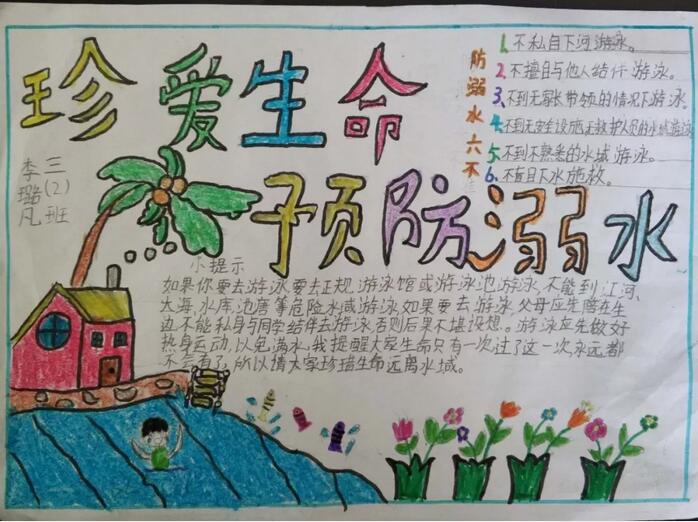 珍爱生命
预防溺水
三(2)班
李璐凡
防溺水六不
1.不私自下河游泳。
2.不擅自与他人结伴游泳。
3.不到无家长带领的情况下游泳。
4.不到无安全设施,无救护人员的水域游泳
5.不到不熟悉的水域游泳。
6.不擅自下水施救。
小提示
如果你要去游泳,要去正规游泳馆或游泳池游泳,不能到江河、
大海,水库,池唐等危险水域游泳,如果要去游泳,父母应先陪在生
边,不能私身与同学结伴去游泳,否则后果不堪设想。游泳应先做好
热身运动,以免满水,我提醒大家生命只有一次过了这一次,永远都
不会有了,所以请大家珍猎生命远离水域。